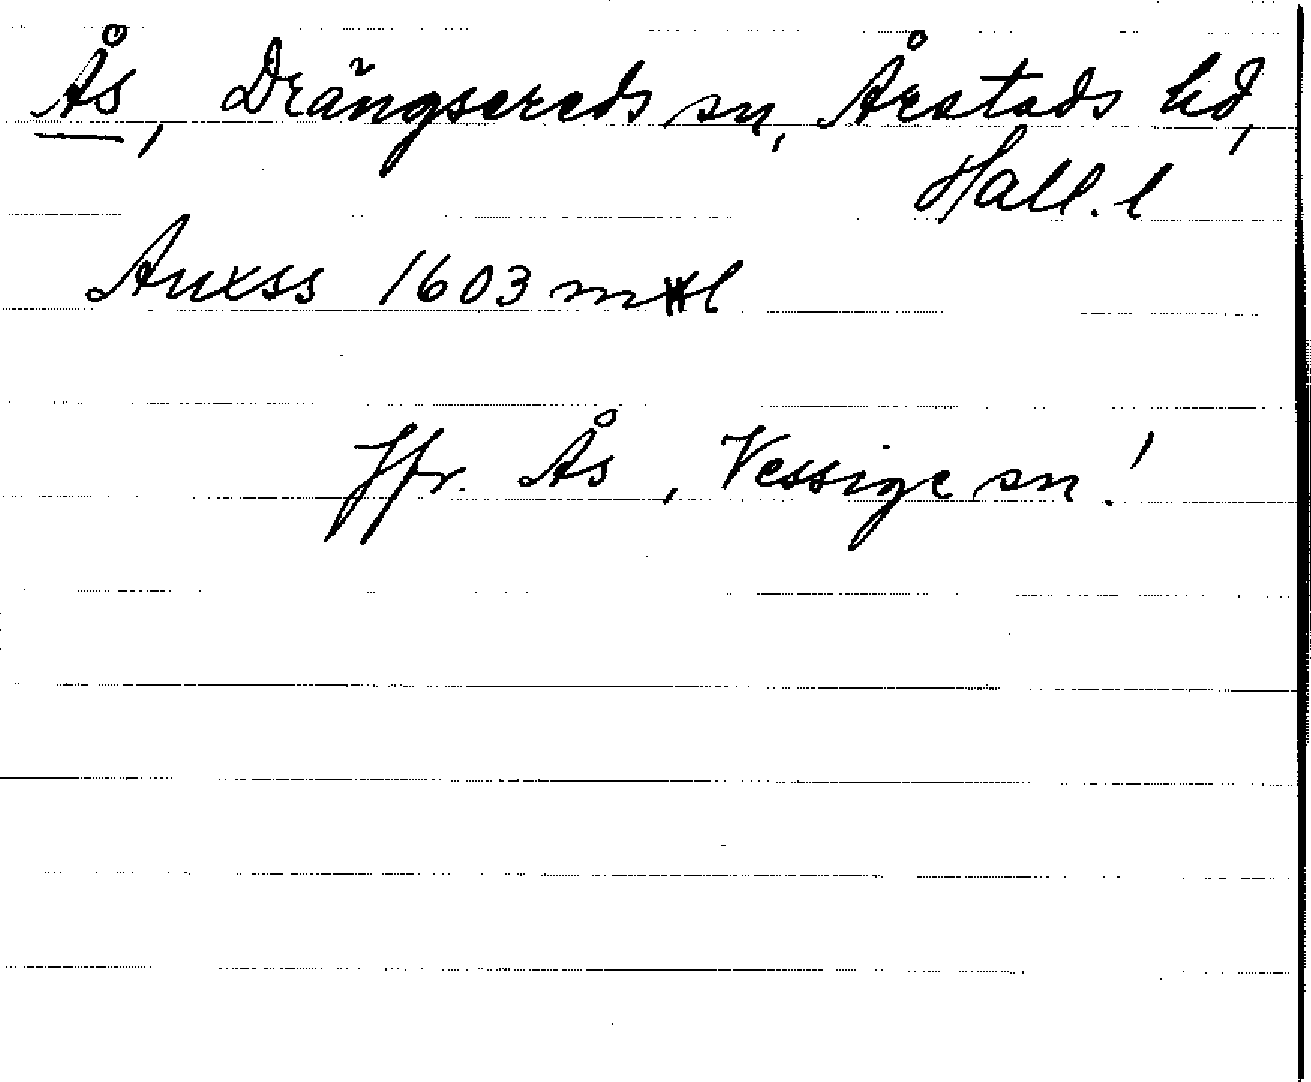 Ås, Drängsereds sn, Årstads hd,
Hall. l
Auxss 1603 mtl
Jfr. Ås, Vessige sn!